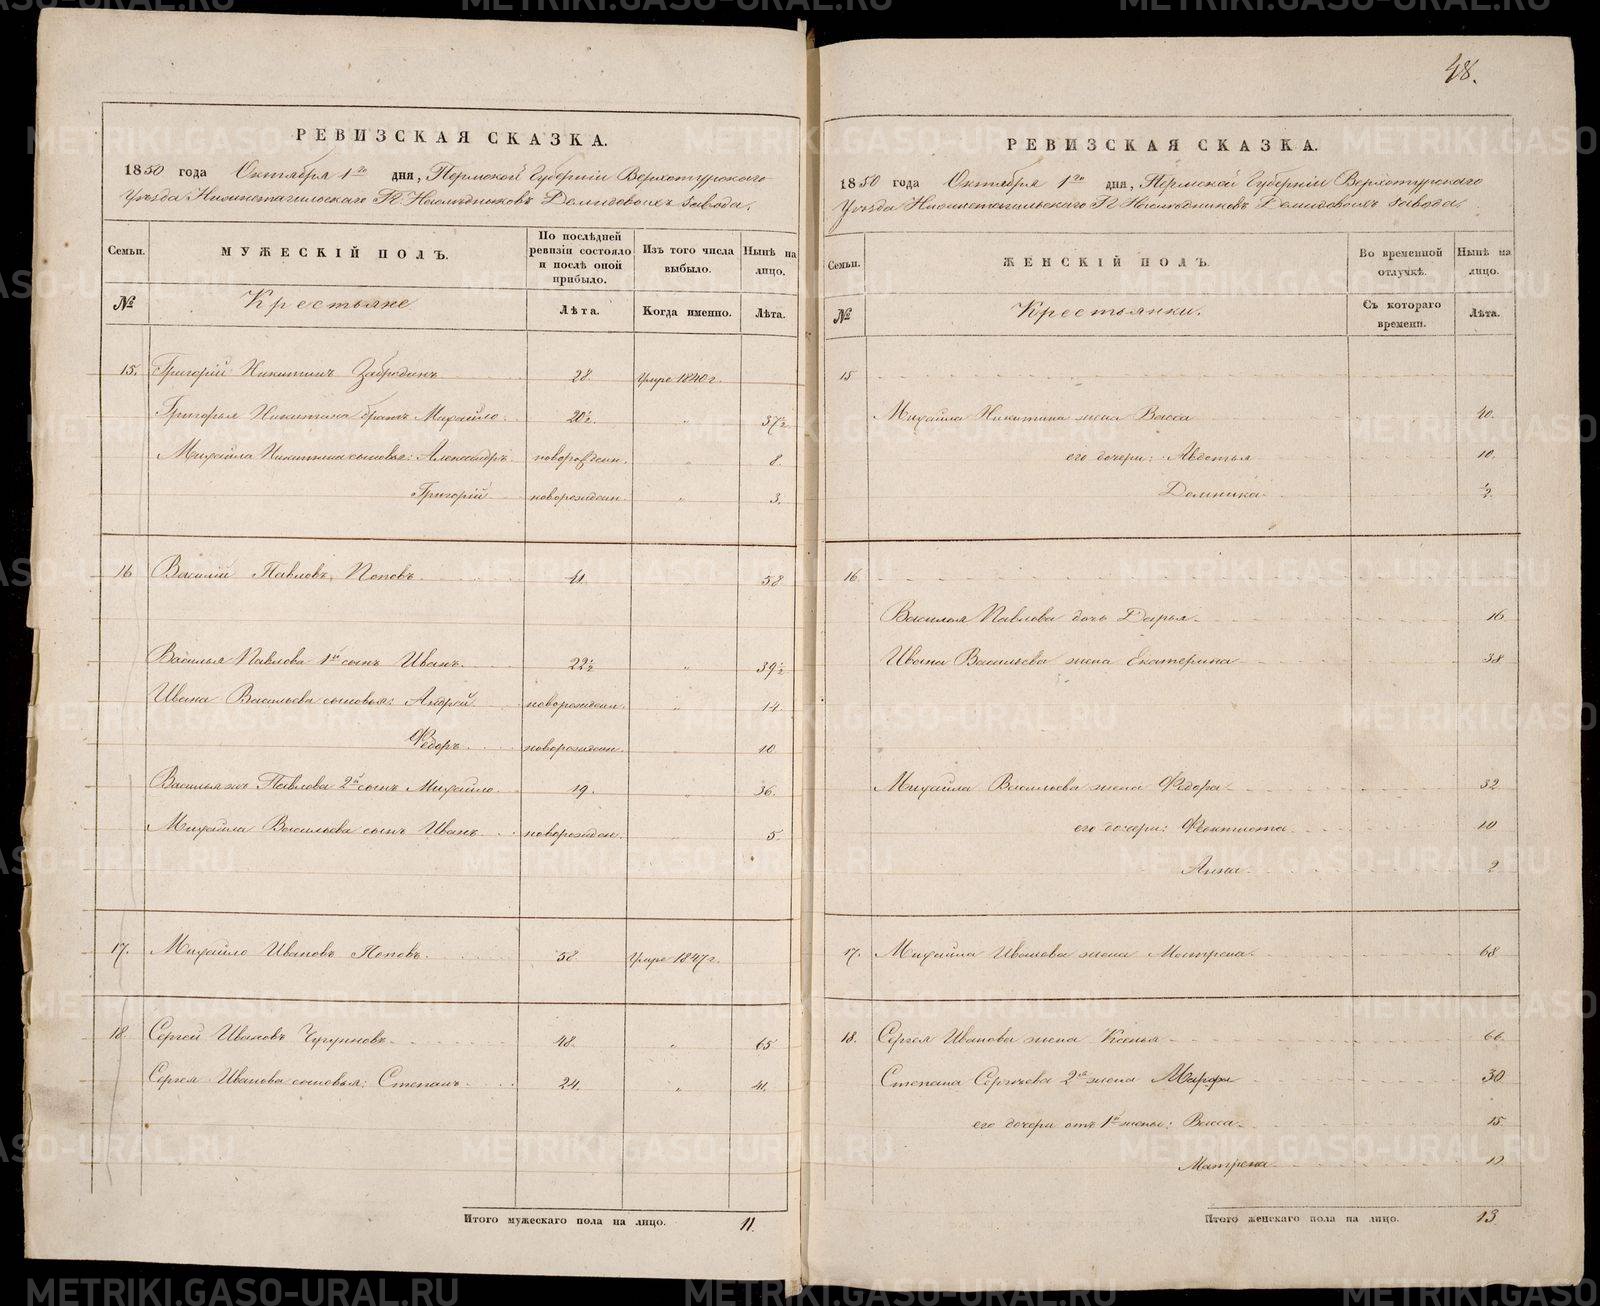 48.
РЕВИЗСКАЯ СКАЗКА.
1850 года Октября 1го дня, Пермской Губернiи Верхотурскаго
Уѣзда Нижнетагильскаго Гг Наслѣдниковъ Демидовыхъ завода.
Семьи. МУЖЕСКIЙ ПОЛЪ. По послѣдней ревизiи состояло и послѣ оной прибыло. Изъ того числа выбыло. Нынѣ на лицо.
№ Крестьяне Лѣта. Когда именно. Лѣта.
15. Григорiй Никитинъ Забродинъ 28. Умре 1840 г.
Григорья Никитина братъ Михайло 20½ " 37½
Михайла Никитина сыновья: Александръ новорожден. " 8.
Григорiй новорожден. " 3.
16 Василiй Павловъ Поповъ 41. 58
Василья Павлова 1й сынъ Иванъ 22½ " 39½
Ивана Васильева сыновья: Андрей новорожден. " 14.
Ѳедоръ новорожден. 10
Василья жъ Павлова 2й сынъ Михайло 19. " 36.
Михайла Васильева сынъ Иванъ новорожден. " 5.
17. Михайло Ивановъ Поповъ 58. Умре 1847 г.
18. Сергей Ивановъ Чугуновъ 48. " 65
Сергея Иванова сыновья: Степанъ 24. " 41.
Итого мужескаго пола на лицо. 11.
РЕВИЗСКАЯ СКАЗКА.
1850 года Октября 1го дня, Пермской Губернiи Верхотурскаго
Уѣзда Нижнетагильскаго Гг Наслѣдниковъ Демидовыхъ завода.
Семьи. ЖЕНСКIЙ ПОЛЪ. Во временной отлучкѣ. Нынѣ на лицо.
№ Крестьянки. Съ котораго времени. Лѣта.
15
Михайла Никитина жена Васса 40.
его дочери: Авдотья 10.
Домника ½
16.
Василья Павлова дочь Дарья 16
Ивана Васильева жена Екатерина 38
Михайла Васильева жена Ѳедора 32
его дочери: Феоктиста 10
Анна 2
17. Михайла Иванова жена Матрена 68
18. Сергея Иванова жена Ксенья 66
Степана Сергѣева 2я жена Марфа 30
его дочери отъ 1й жены: Васса 15
Матрена
Итого женскаго пола на лицо. 13
METRIKI.GASO-URAL.RU